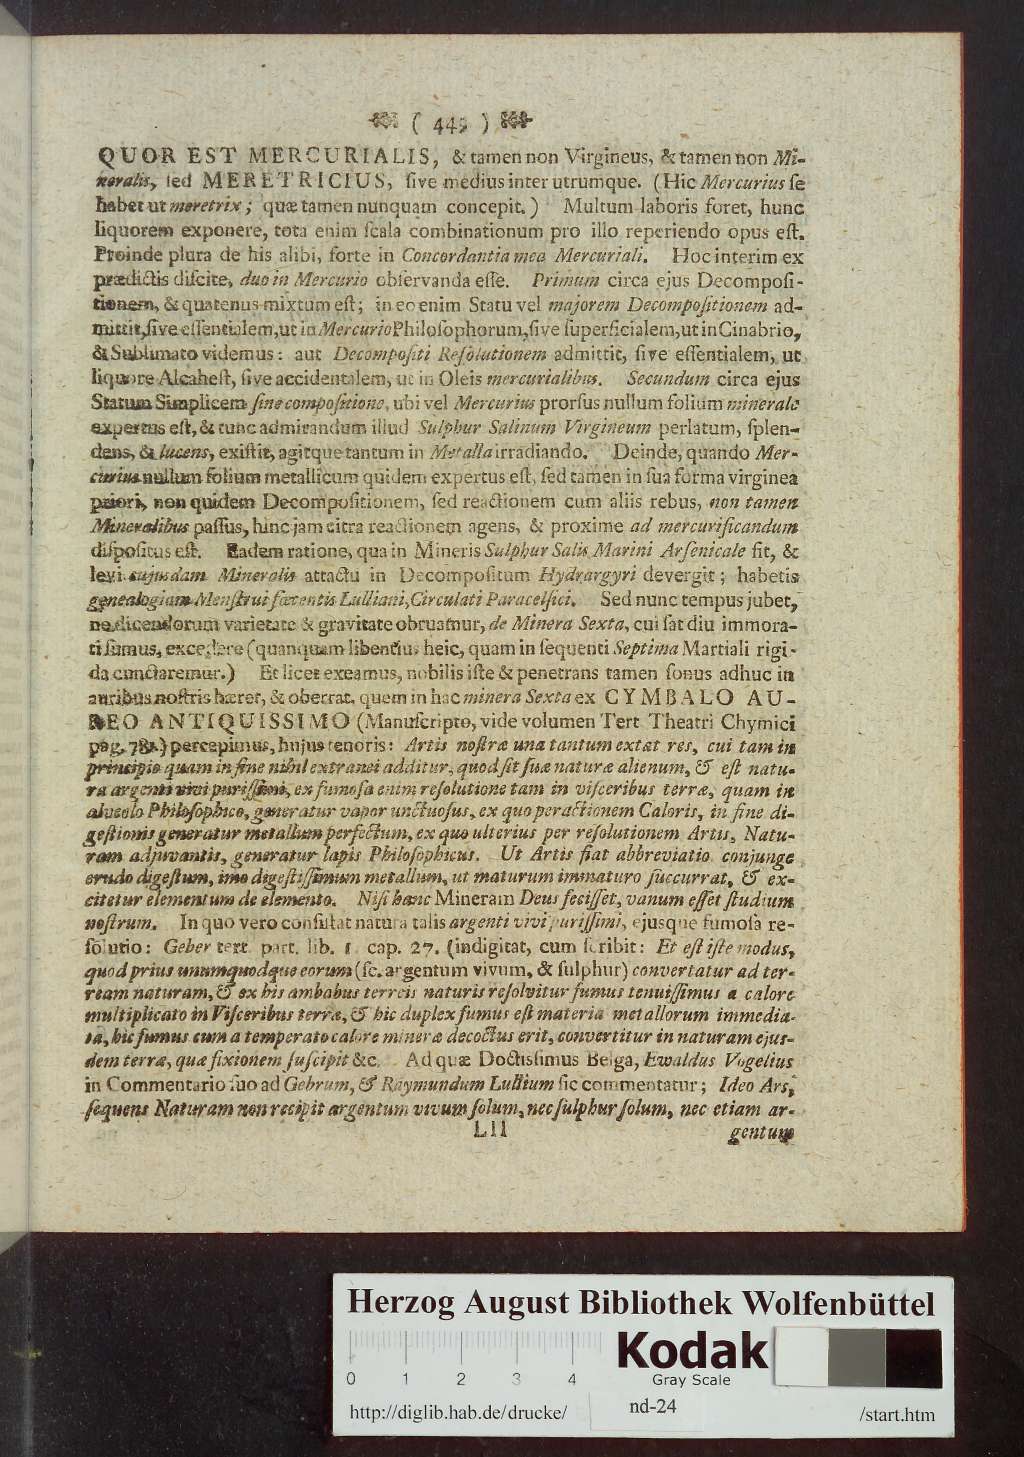 ( 449 )
QUOR EST MERCURIALIS, & tamen non Virgineus, & tamen non Mi-
neralis, sed MERETRICIUS, sive medius inter utrumque. (Hic Mercurius se
habet ut meretrix; quæ tamen nunquam concepit.) Multum laboris foret, hunc
liquorem exponere, tota enim scala combinationum pro illo reperiendo opus est.
Proinde plura de his alibi, forte in Concordantia mea Mercuriali. Hoc interim ex
prædictis discite, duo in Mercurio observanda esse. Primum circa ejus Decomposi-
tionem, & quatenus mixtum est; in eo enim Statu vel majorem Decompositionem ad-
mittit, sive essentialem, ut in Mercurio Philosophorum, sive superficialem, ut in Cinabrio,
& Sublimato videmus: aut Decompositi Resolutionem admittit, sive essentialem, ut
liquore Alcahest, sive accidentalem, ut in Oleis mercurialibus. Secundum circa ejus
Statum Simplicem sine compositione, ubi vel Mercurius prorsus nullum folium minerale
expertus est, & tunc admirandum illud Sulphur Salinum Virgineum perlatum, splen-
dens, & lucens, existit, agitque tantum in Metalla irradiando. Deinde, quando Mer-
curius nullum folium metallicum quidem expertus est, sed tamen in sua forma virginea
priori, non quidem Decompositionem, sed reactionem cum aliis rebus, non tamen
Mineralibus passus, hinc jam citra reactionem agens, & proxime ad mercurificandum
dispositus est. Eadem ratione, qua in Mineris Sulphur Salis Marini Arsenicale fit, &
levi cujusdam Mineralis attactu in Decompositum Hydrargyri devergit; habetis
genealogiam Menstrui fœtentis Lulliani, Circulati Paracelsici. Sed nunc tempus jubet,
ne dicendorum varietate & gravitate obruamur, de Minera Sexta, cui sat diu immora-
ti sumus, excedere (quanquam libentius heic, quam in sequenti Septima Martiali rigi-
da cunctaremur.) Et licet exeamus, nobilis iste & penetrans tamen sonus adhuc in
auribus nostris hæret, & oberrat, quem in hac minera Sexta ex CYMBALO AU-
REO ANTIQUISSIMO (Manuscripto, vide volumen Tert Theatri Chymici
pag. percepimus, hujus tenoris: Artis nostræ una tantum extat res, cui tam in
principio quam in fine nihil extranei additur, quod sit suæ naturæ alienum, & est natu-
ra argenti vivi purissimi, ex fumosa enim resolutione tam in visceribus terræ, quam in
alveolo Philosophico, generatur vapor unctuosus, ex quo peractionem Caloris, in fine di-
gestionis generatur metallum perfectum, ex quo ulterius per resolutionem Artis, Natu-
ram adjuvantis, generatur lapis Philosophicus. Ut Artis fiat abbreviatio conjunge
crudo digestum, imo digestissimum metallum, ut maturum immaturo succurrat, & ex-
citetur elementum de elemento. Nisi hanc Mineram Deus fecisset, vanum esset studium
nostrum. In quo vero consistat natura talis argenti vivi purissimi, ejusque fumosa re-
solutio: Geber tert. part. lib. 1 cap. 27. (indigitat, cum scribit: Et est iste modus,
quod prius unumquodque eorum (sc. argentum vivum, & sulphur) convertatur ad ter-
ream naturam, & ex his ambabus terreis naturis resolvitur fumus tenuissimus a calore
multiplicato in Visceribus terræ, & hic duplex fumus est materia metallorum immedia-
ta, hic fumus cum a temperato calore mineræ decoctus erit, convertitur in naturam ejus-
dem terræ, quæ fixionem suscipit &c. Ad quæ Doctissimus Belga, Ewaldus Vogelius
in Commentario suo ad Gebrum, & Raymundum Lullium sic commentatur; Ideo Ars,
sequens Naturam non recipit argentum vivum solum, nec sulphur solum, nec etiam ar-
Lll
gentum
Herzog August Bibliothek Wolfenbüttel
Kodak
Gray Scale
0 1 2 3 4
http://diglib.hab.de/drucke/
nd-24
/start.htm